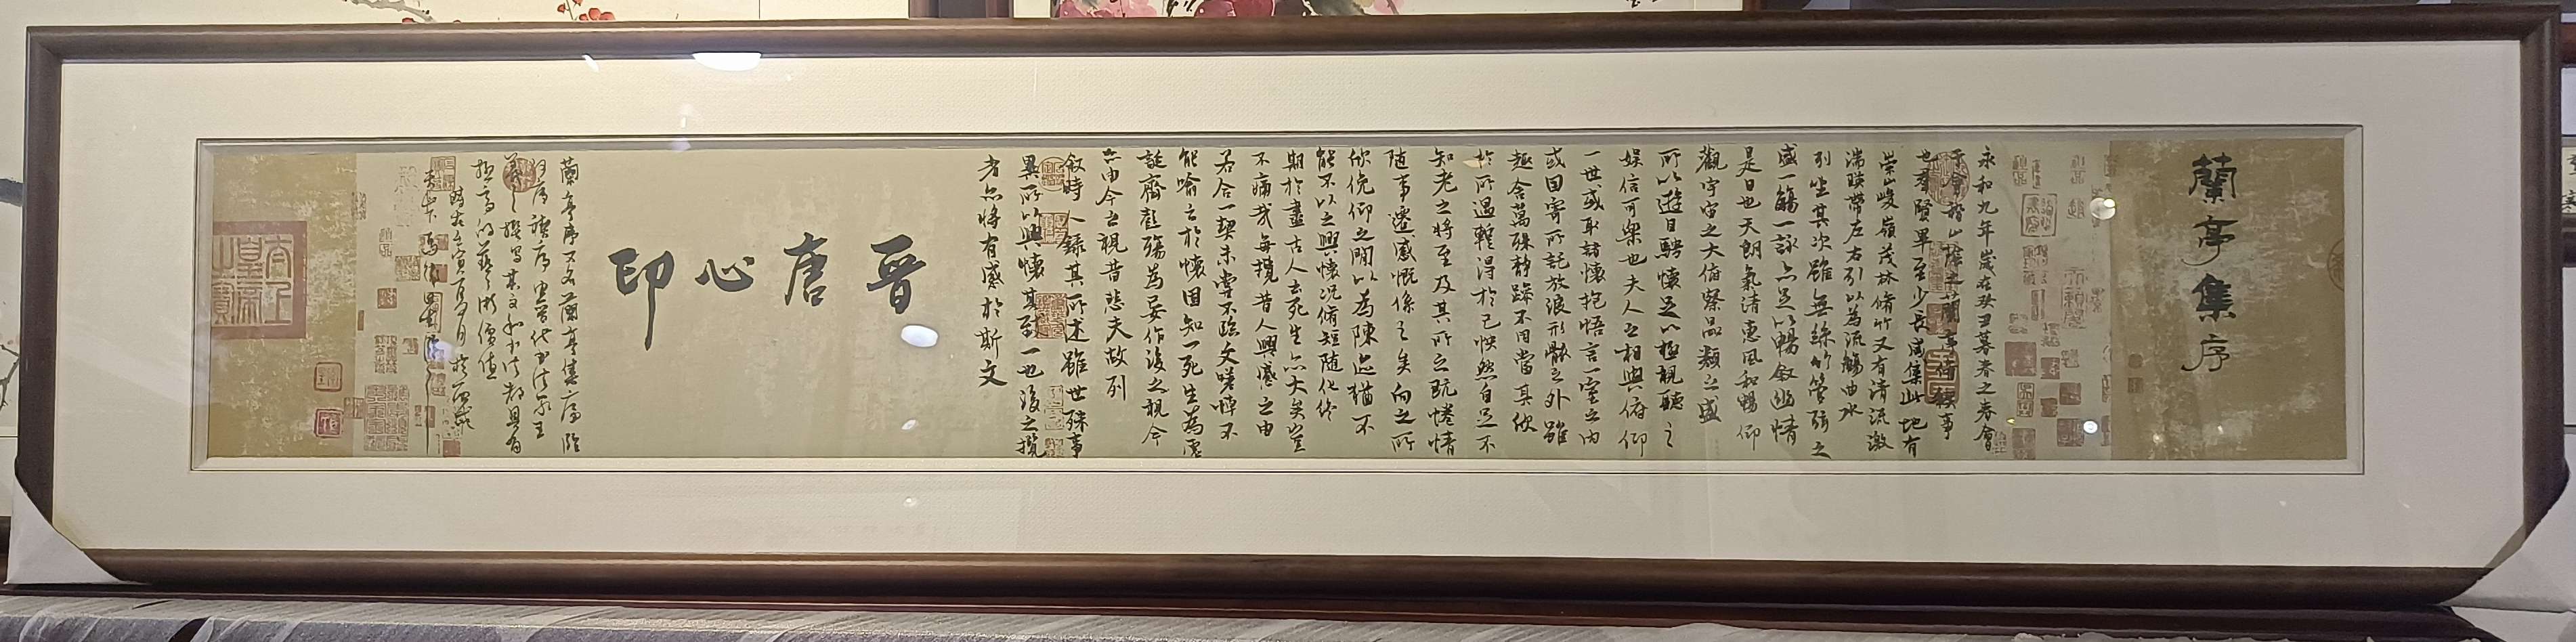 蘭亭集序
永和九年歲在癸丑暮春之春會
于會稽山陰之蘭亭脩稧事
也羣賢畢至少長咸集此地有
崇山峻嶺茂林脩竹又有清流激
湍暎帶左右引以為流觴曲水
列坐其次雖無絲竹管弦之
盛一觴一詠亦足以暢叙幽情
是日也天朗氣清惠風和暢仰
觀宇宙之大俯察品類之盛
所以遊目騁懷足以極視聽之
娛信可樂也夫人之相與俯仰
一世或取諸懷抱悟言一室之内
或因寄所託放浪形骸之外雖
趣舍萬殊靜躁不同當其欣
於所遇輕得於己怏然自足不
知老之將至及其所之既惓情
随事遷感慨係之矣向之所
欣俛仰之間以為陳迹猶不
能不以之興懷況脩短隨化終
期於盡古人云死生亦大矣豈
不痛哉每攬昔人興感之由
若合一契未嘗不臨文嗟悼不
能喻之於懷固知一死生為虛
誕齊彭殤為妄作後之視今
亦由今之視昔悲夫故列
叙時人錄其所述雖世殊事
異所以興懷其致一也後之攬
者亦將有感於斯文
晉唐心印
蘭亭序又名蘭亭集序臨